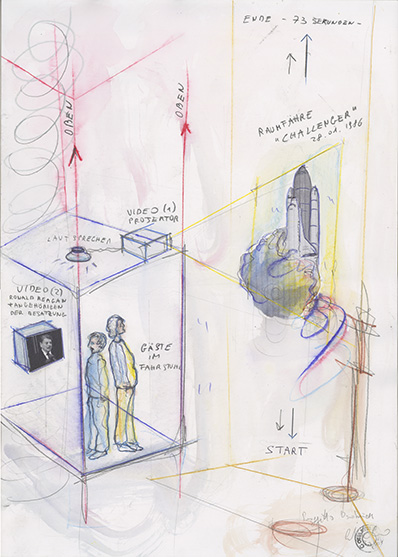 ENDE - 73 SEKUNDEN -
OBEN
OBEN
RAUMFÄHRE
"CHALLENGER"
28.01.1986
VIDEO (1)
PROJEKTOR
LAUTSPRECHER
VIDEO (2)
RONALD REAGAN
+ ANGEHÖRIGEN
DER BESATZUNG
GÄSTE
IM
FAHRSTUHL
START